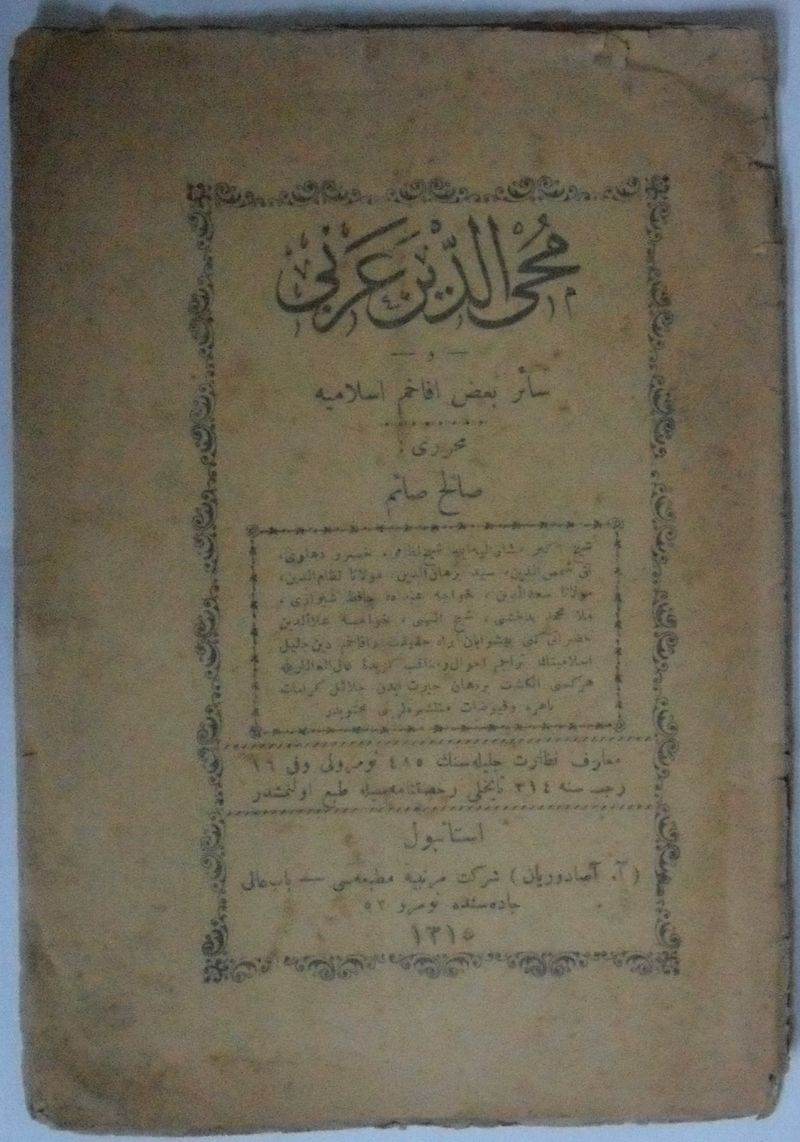 محيى الدين عربى
و
سائر بعض افاخم اسلاميه
محررى :
صالح صائم
شيخ اكبر مشار اليه ايله شيخ نظامى، خسرو دهلوى،
شمس الدين، سيد برهان الدين، مولانا نظام الدين،
مولانا سعد الدين، خواجه حافظ شيرازى،
ملا محمد بدخشى، شيخ الهى، خواجه علاالدين
حضراتى كبى پيشوايان حقيقت وافاخم دين جليل
اسلاميتك تراجم احوال ومناقب گزيدهٔ
هركسى انگشت بردهان حيرت ايدن جلائل كرامات
باهره وفيوضات منتشره لرينى محتويدر
معارف نظارت جليله سنك ٤٨٥ نومرولى وفى ١٦
رجب سنه ٣١٤ تاريخلى رخصتنامه سيله طبع اولنمشدر
استانبول
( آ. آصادوريان ) شركت مرتبيه مطبعه سى — باب عالى
جاده سنده نومرو ٥٢
١٣١٥